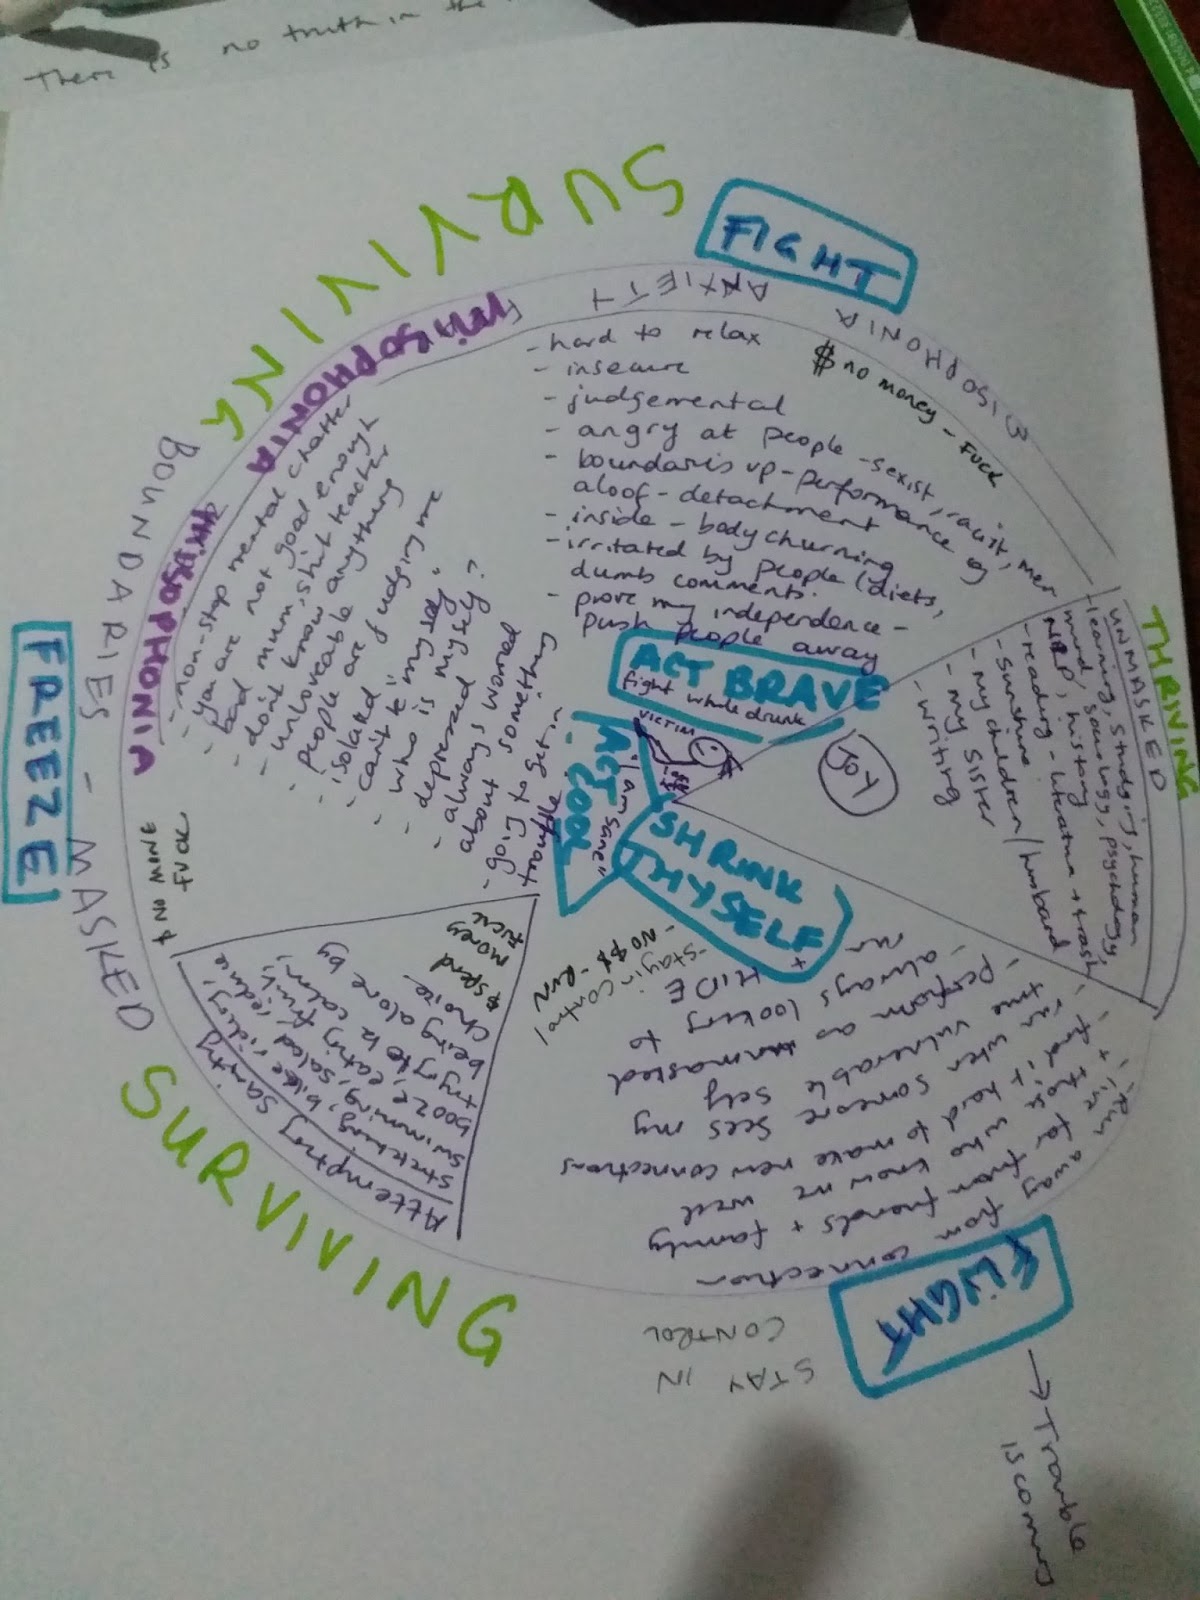 There is no truth in the
SURVIVING
FIGHT
ANXIETY
MISOPHONIA
$ no money - FUCK
- hard to relax
- insecure
- judgemental
- angry at people - sexist, racist, mer
- boundaris up - performance of
aloof - detachment
- inside - body churning
- irritated by people (diets,
dumb comments.
- prove my independence -
push people away
ACT BRAVE
fight whole drunk
VICTIM
"I am sane"
ACT COOL
SHRINK
THYSELF
+ HIDE
JOY
THRIVING
UNMASKED
- learning, studying, human
mind, sociology, psychology,
NLP, history
- reading - literature + trash
- Sunshine
- my children / husband
- my sister
- writing
FREEZE
BOUNDARIES - MASKED
MISOPHONIA
MISOPHONIA
- non-stop mental chatter
- you are not good enough
- bad mum, shit teacher
- don't know anything
- unloveable
- people are judging me
- isolated
- can't be "myself"
- who is myself?
- depressed
- always worried
about something
- going to get in
trouble
$ NO MONE
FUCK
SURVIVING
Attempting sanity
stretching, bike riding,
swimming, salad, reduce
booze, eating fruit,
trying to be calm,
being alone by
choice.
$ spend
money
FUCK
FLIGHT
→ Trouble
is coming
STAY IN
CONTROL
- stay in control
- NO $$ - RUN
- always looking to
run
- perform as unmasked
when someone sees my
vulnerable self
- I find it hard to make new connections
+ live far from friends + family
who know me well
- Run away from connection